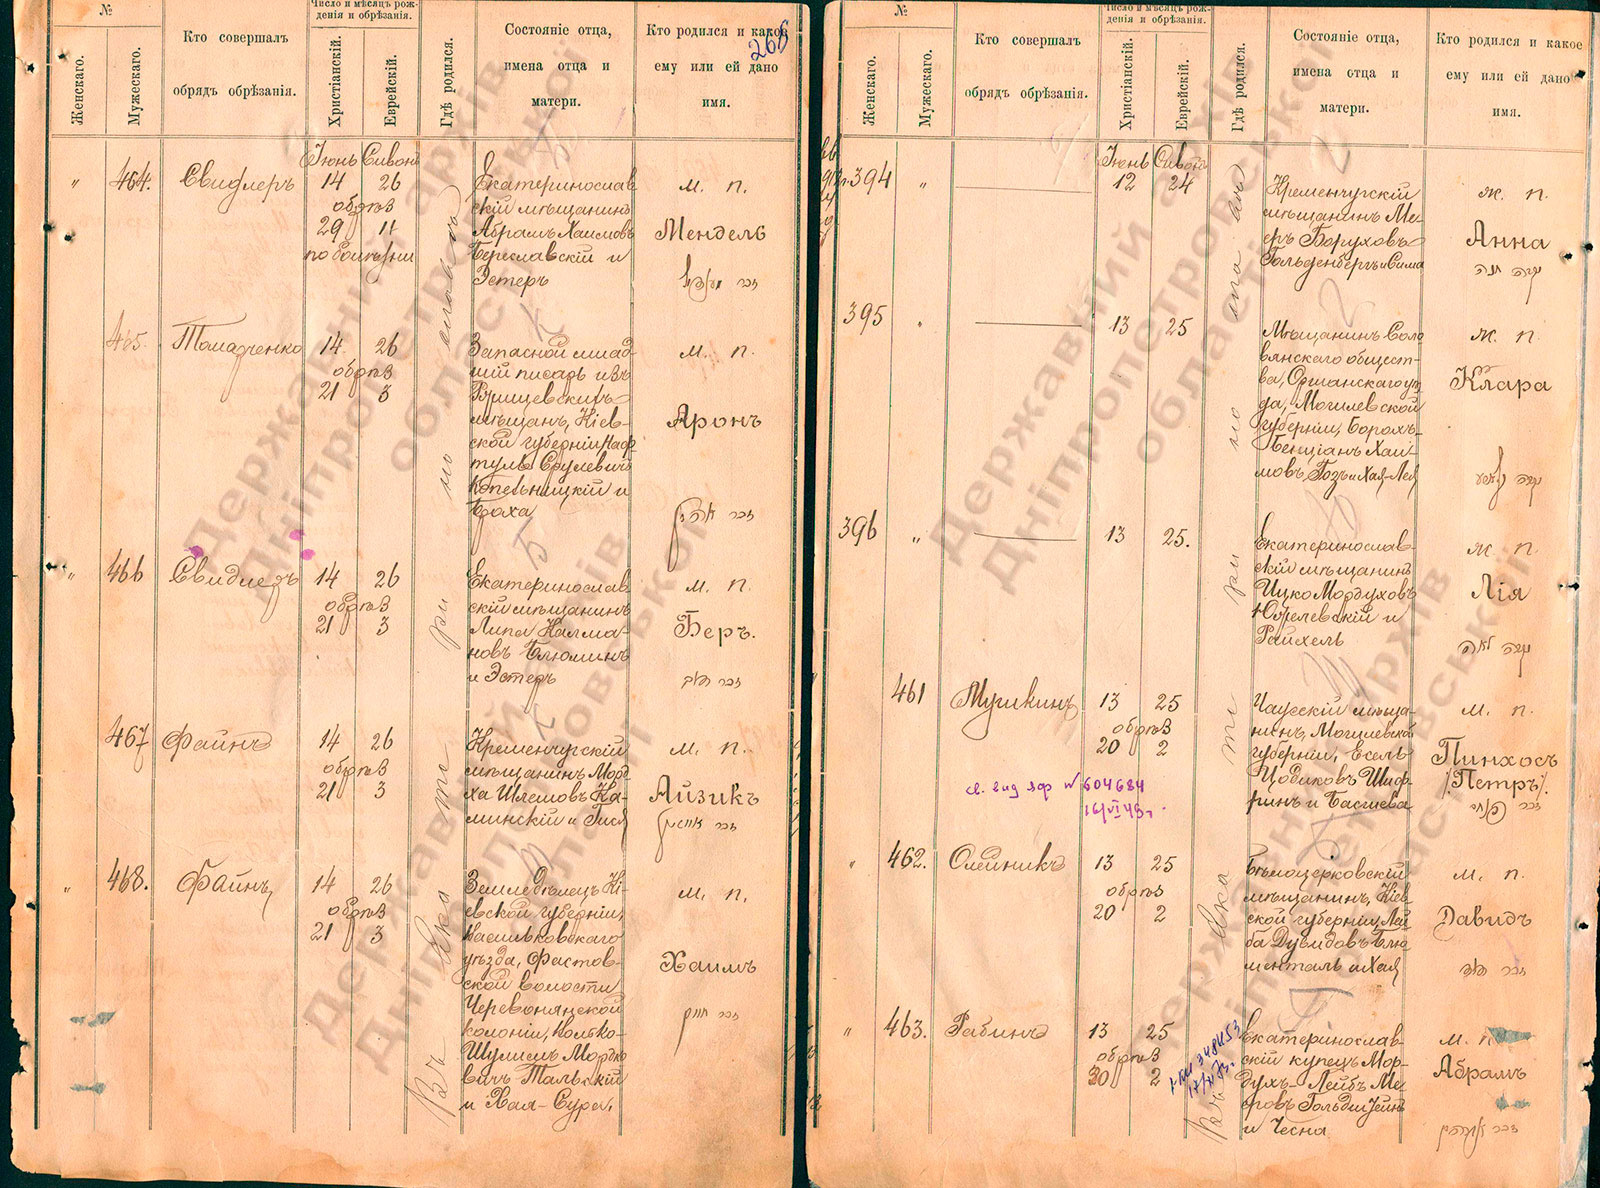 №
Женскаго.
Мужескаго.
Кто совершалъ
обрядъ обрѣзанія.
Число и мѣсяцъ рож-
денія и обрѣзанія.
Христіанскій.
Еврейскій.
Гдѣ родился.
Состояніе отца,
имена отца и
матери.
Кто родился и какое
ему или ей дано
имя.
265
Іюнь Сивонъ
464. Свидлеръ 14 26
обрѣз
29 11
по болѣзни
Екатеринослав
скій мѣщанинъ
Абрамъ Хаимовъ
Береславскій и
Эстеръ
м. п.
Мендель
465. Томазченко 14 26
обрѣз
21 3
Запасной млад
шій писарь изъ
Ржищевскихъ
мѣщанъ, Кіев-
ской губерніи Наф
туль Срулевичъ
Копельницкій и
Броха
м. п.
Аронъ
466 Свидлеръ 14 26
обрѣз
21 3
Екатеринослав
скій мѣщанинъ
Липа Калма-
новъ Блюминъ
и Эстеръ
м. п.
Беръ.
467 Файнъ 14 26
обрѣз
21 3
Кременчугскій
мѣщанинъ Морд
ха Шлемовъ Ка-
минскій и Гися
м. п.
Айзикъ
468. Файнъ 14 26
обрѣз
21 3
Земледѣлецъ Кі-
евской губерніи,
Васильковскаго
уѣзда, Фастов-
ской волости
Червонянской
колоніи,
Шулимъ Мордко
вичъ Тальскій
и Хая-Сура.
м. п.
Хаимъ
Въ Екатеринославѣ
№
Женскаго.
Мужескаго.
Кто совершалъ
обрядъ обрѣзанія.
Число и мѣсяцъ рож-
денія и обрѣзанія.
Христіанскій.
Еврейскій.
Гдѣ родился.
Состояніе отца,
имена отца и
матери.
Кто родился и какое
ему или ей дано
имя.
Іюнь Сивонъ
394 " 12 24
Кременчугскій
мѣщанинъ Ме-
еръ Боруховъ
Гольденбергъ и Сима
ж. п.
Анна
395 " 13 25
Мѣщанинъ Соло
вянскаго общест-
ва, Оршанскаго уѣз
да, Могилевской
губерніи, Борохъ-
Бенціанъ Хаи-
мовъ Гозъ и Хая-Лея
ж. п.
Клара
396 " 13 25.
Екатеринослав-
скій мѣщанинъ
Ицко Мордуховъ
Юзелевскій и
Райхель
ж. п.
Лія
461 Мушкинъ 13 25
обрѣз
20 2
св. выд 604684
16/VI 49г.
Чаусскій мѣща-
нинъ, Могилевской
губерніи, Есель
Цодиковъ Шиф-
ринъ и Басшева
м. п.
Пинхосъ
(Петръ).
462. Олейникъ 13 25
обрѣз
20 2
Бѣлоцерковскій
мѣщанинъ, Кіев-
ской губерніи, Лей-
ба Дувидовъ Блю
менталь и Хая
м. п.
Давидъ
463. Рабинъ 13 25
обрѣз
30 2
Екатеринослав-
скій купецъ Мор-
духъ-Лейбъ Ме
еровъ Гольдштейнъ
и Чесна
м. п.
Абрамъ
Въ Екатеринославѣ
Державний архів
Дніпропетровської
області